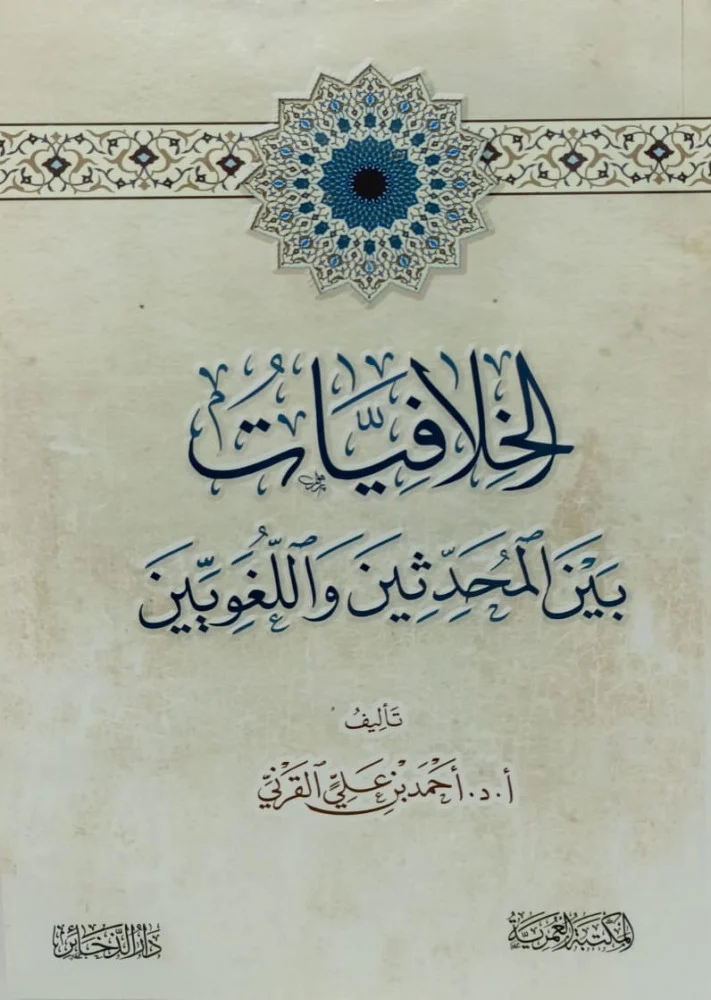 الخِلَافِيَّاتُ
بَيْنَ المُحَدِّثِينَ وَاللُّغَوِيِّينَ
تَأْلِيفُ
أ.د. أَحْمَد بْنِ عَلِيٍّ القَرْنِيِّ
المكتبة العمرية
دار الذخائر